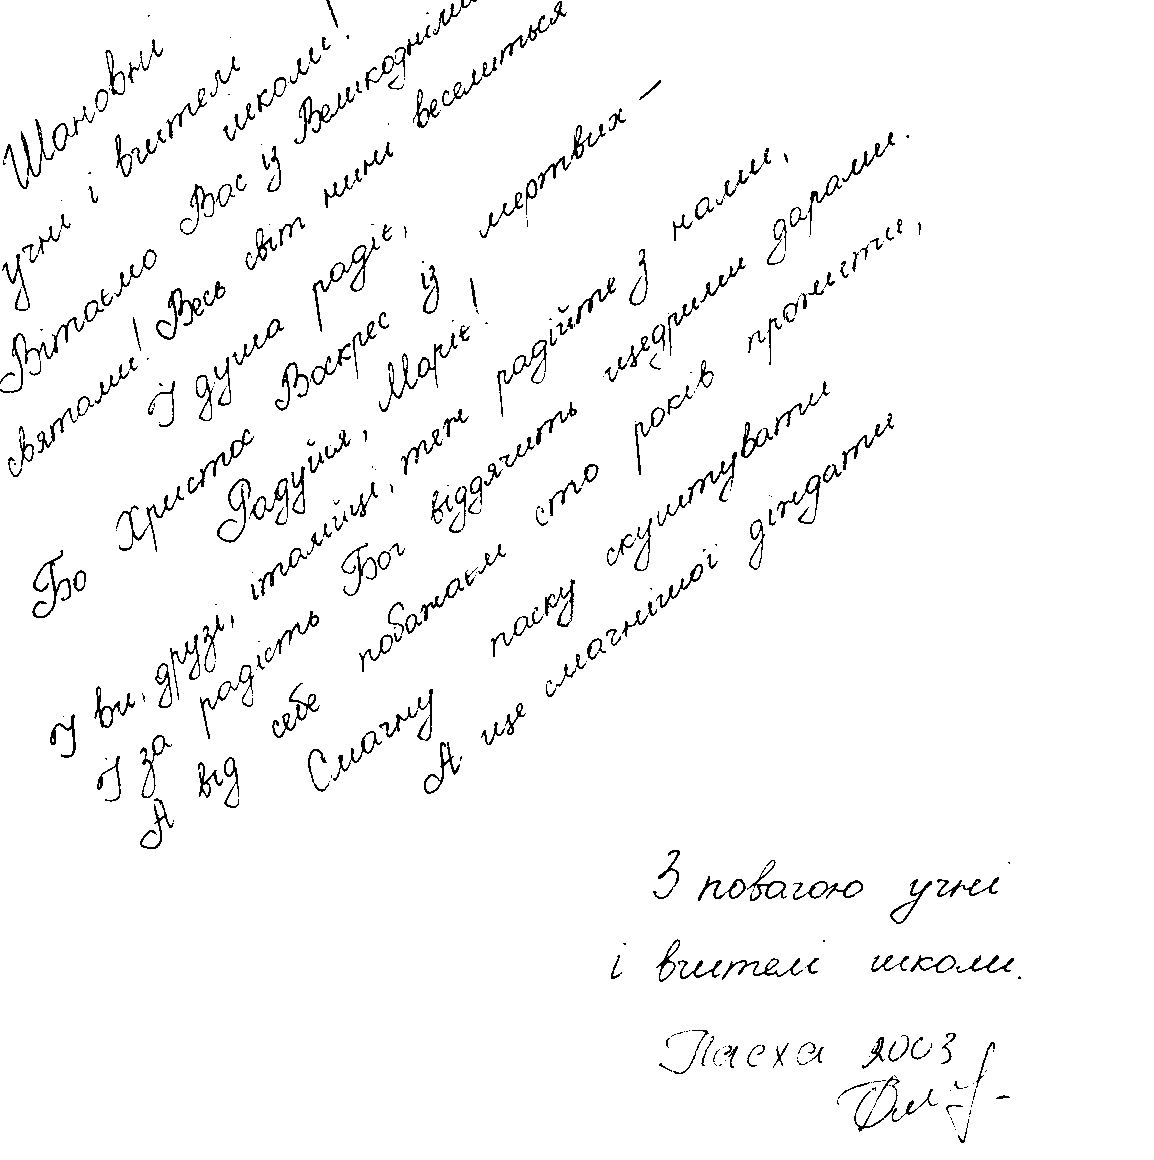 Шановні
учні і вчителі
школи!
Вітаємо Вас із Великодніми
святами! Весь світ нині веселиться
І душа радіє,
Бо Христос Воскрес із мертвих –
Радуйся, Маріє!
І ви, друзі, італійці, теж радійте з нами,
І за радість Бог віддячить щедрими дарами.
А від себе побажаєм сто років прожити,
Смачну паску скуштувати
А ще смачнішої діждати
З повагою учні
і вчителі школи.
Пасха 2003